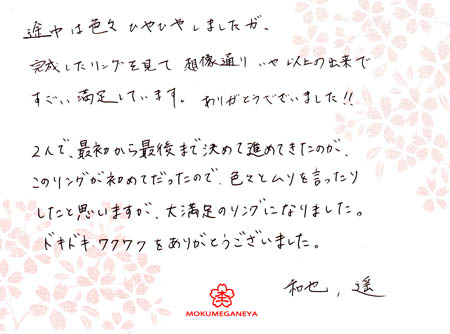 途中は色々ひやひやしましたが、
完成したリングを見て想像通りいや以上の出来で
すごい満足しています。ありがとうございました!!
2人で、最初から最後まで決めて進めてきたのが、
このリングが初めてだったので、色々とムリを言ったり
したと思いますが、大満足のリングになりました。
ドキドキワクワクをありがとうございました。
和也, 遥
MOKUMEGANEYA